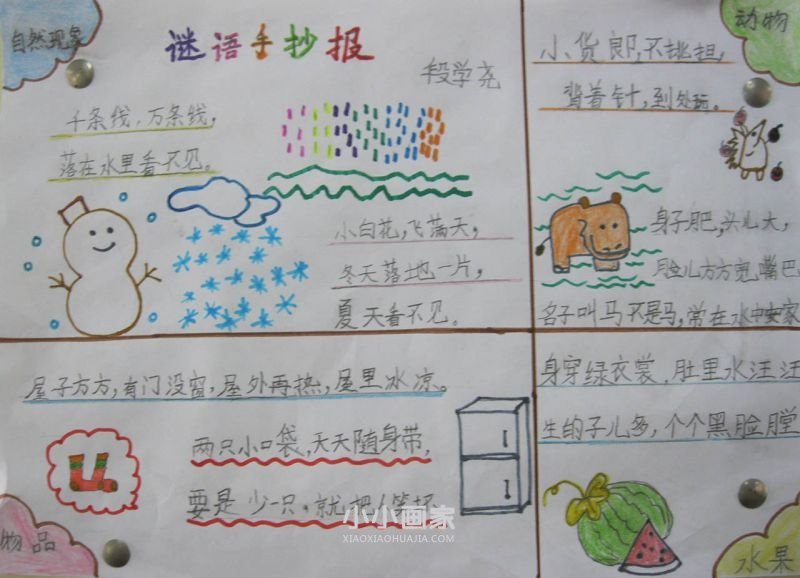 自然现象
谜语手抄报
段学尧
千条线,万条线,
落在水里看不见。
小白花,飞满天,
冬天落地一片,
夏天看不见。
动物
小货郎,不挑担,
背着针,到处玩。
身子肥,头儿大,
脸儿方方宽嘴巴
名子叫马不是马,常在水中安家
屋子方方,有门没窗,屋外再热,屋里冰凉。
两只小口袋,天天随身带,
要是少一只,就把人笑坏
物品
身穿绿衣裳,肚里水汪汪
生的子儿多,个个黑脸膛
水果
小小画家
XIAOXIAOHUAJIA.COM